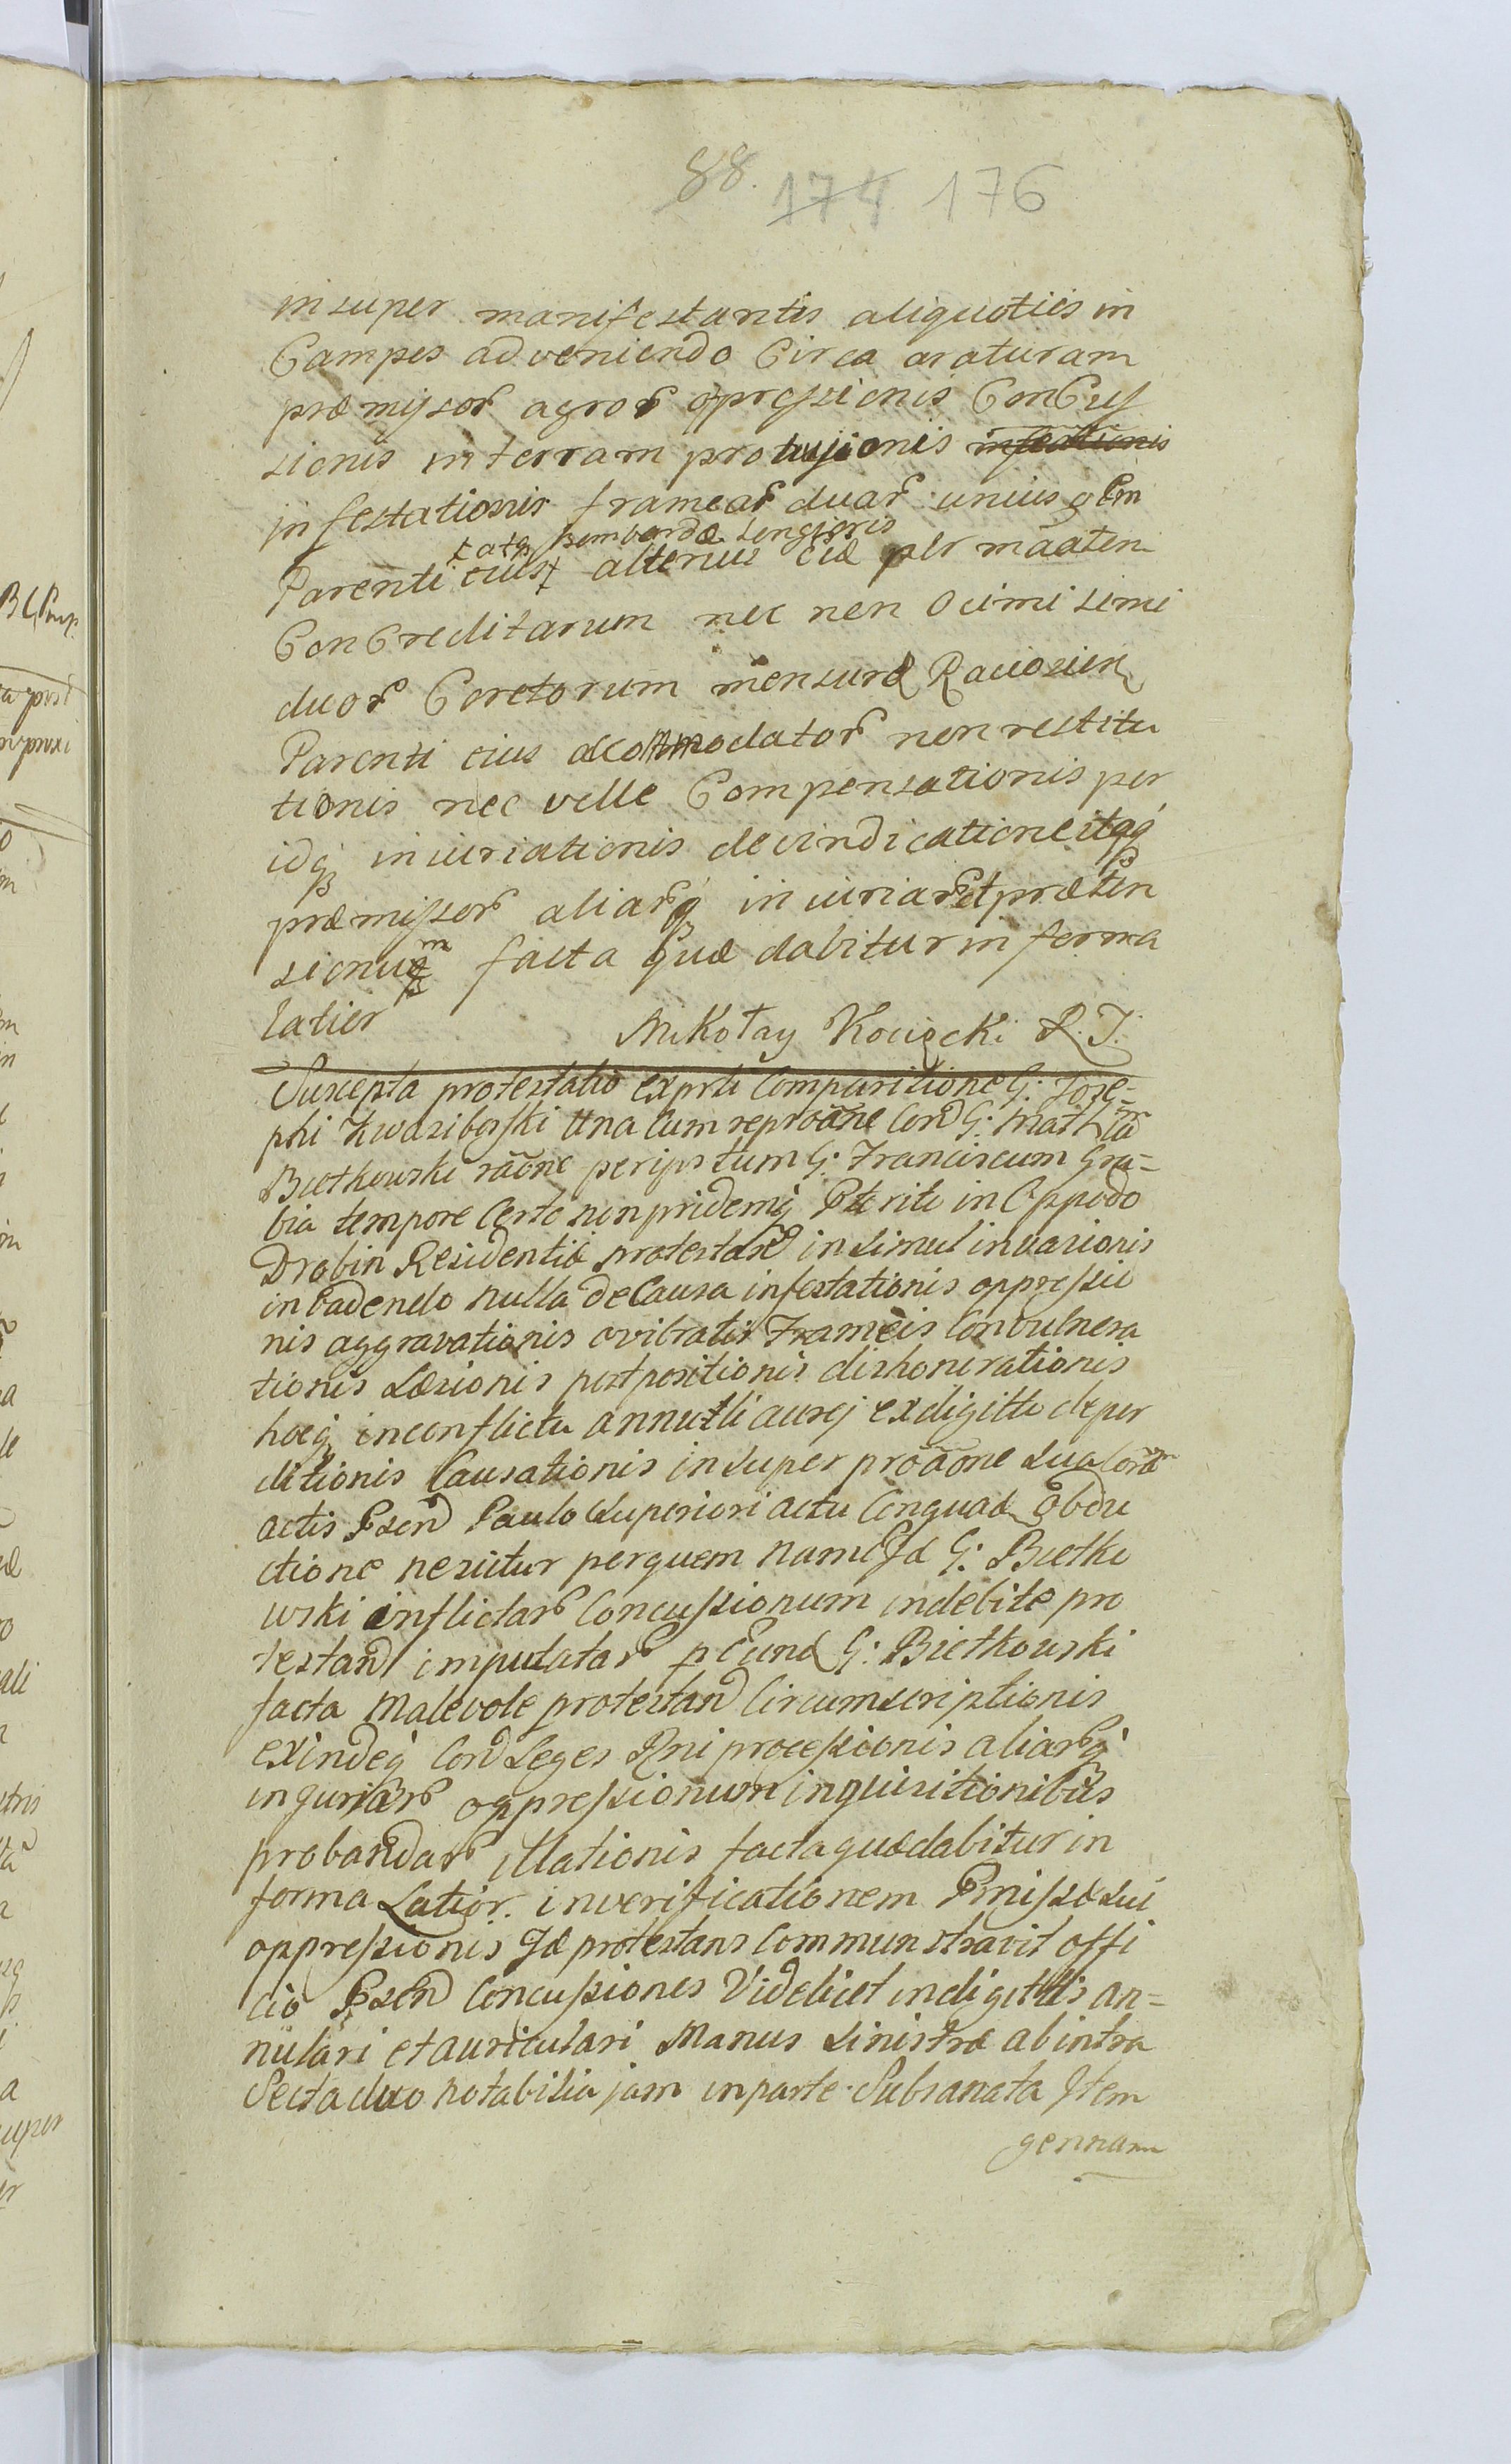 88. 174 176
insuper manifestantis aliquoties in
Campos adveniendo Circa araturam
præmissor agror oppressionis ConCus
sionis in terram protrusionis infestationis
infestationis framear duar unius gem
Parenti eius alterius eid per
atq bombardæ longioris
ConCreditarum nec non
duor Coretorum mensuræ Raciązien
Parenti eius accommodator non restitu
tionis nec velle Compensationis per
idq iniuriationis devindicatione itqq
præmissor aliarq iniuriar et præten
sionum facta quæ dabitur in forma
latior Mikołay Kocięcki R. J.
Suscepta protestatio ex Comparitione G: Jose=
phi Kwasiborski una Cum Cond G: Mathia
Biełkowski per ips tum G: Franciscum Gra=
bia tempore Certo non pridemq Præterito in Oppido
Drobin Residentiæ protestan insimul invasionis
invadendo nulla de Causa infestationis oppressio
nis aggravationis evibratis Frameis Convulnera
tionis Læsionis postpositionis dishonorationis
hocq in conflictu annulli aurej ex digitto deper
ditionis Causationis insuper sua Coram
actis Psend Paulo Superiori actu Obdu
ctione nesiitur per quem G: Biełko
wski inflictar Concussionum indebite pro
testand imputatar p Eund G: Biełkowski
facta malevole protestand Circumscriptionis
exindeq Cond Leges Rni processionis aliarq
injuriar oppressionum inquisitionibus
probandar illationis facta quæ dabitur in
forma Latior. in verificationem Pmissæ sui
oppressionis Id protestans Commonstravit offi
cio Psend Concussiones Videlicet in digittis an=
nulari et auriculari Manus Sinistræ ab intra
Secta duo notabilia jam in parte Subsanata Item
geminam